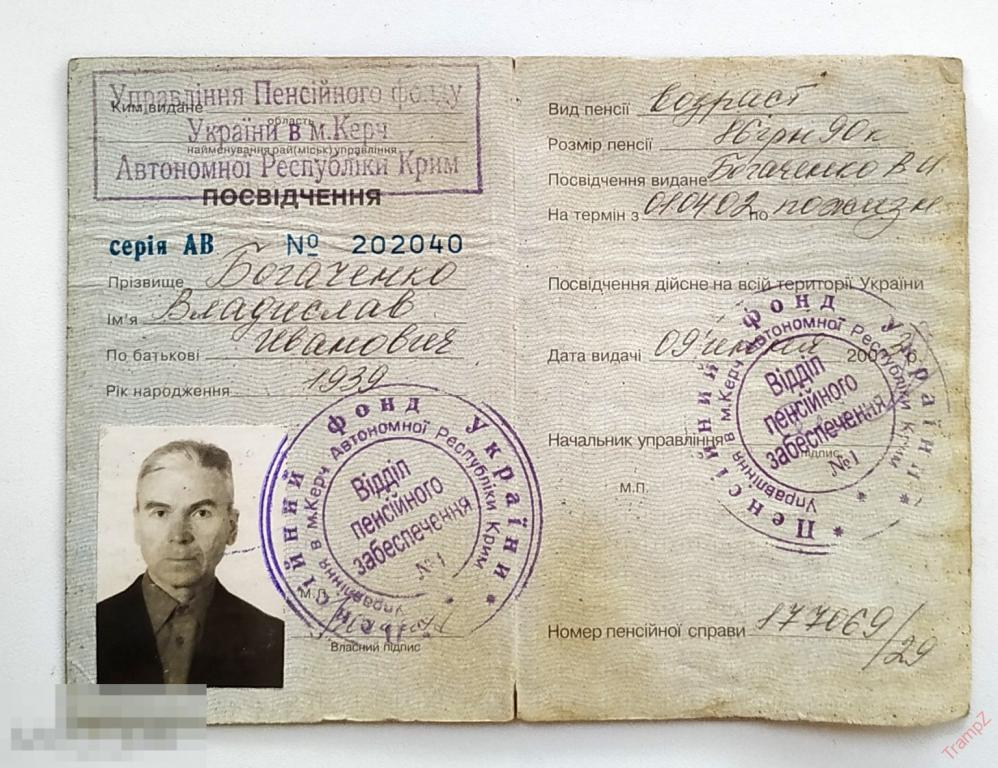 Управління Пенсійного фонду
Ким видане
область
України в м.Керч
найменування рай(міськ)управління
Автономної Республіки Крим
ПОСВІДЧЕННЯ
серія АВ № 202040
Прізвище Богаченко
Ім'я Владислав
По батькові Иванович
Рік народження 1939
Пенсійний фонд України *
Управління в м.Керч Автономної Республіки Крим *
Відділ
пенсійного
забезпечення
№1
М.П.
Власний підпис
Вид пенсії возраст
Розмір пенсії 86 грн 90 к
Посвідчення видане Богаченко В И.
На термін з 010402 по пожизн
Посвідчення дійсне на всій території України
Дата видачі 09 200
Начальник управління
підпис
М.П.
Пенсійний фонд України *
Управління в м.Керч Автономної Республіки Крим *
Відділ
пенсійного
забезпечення
№1
Номер пенсійної справи 177069/29
TrampZ